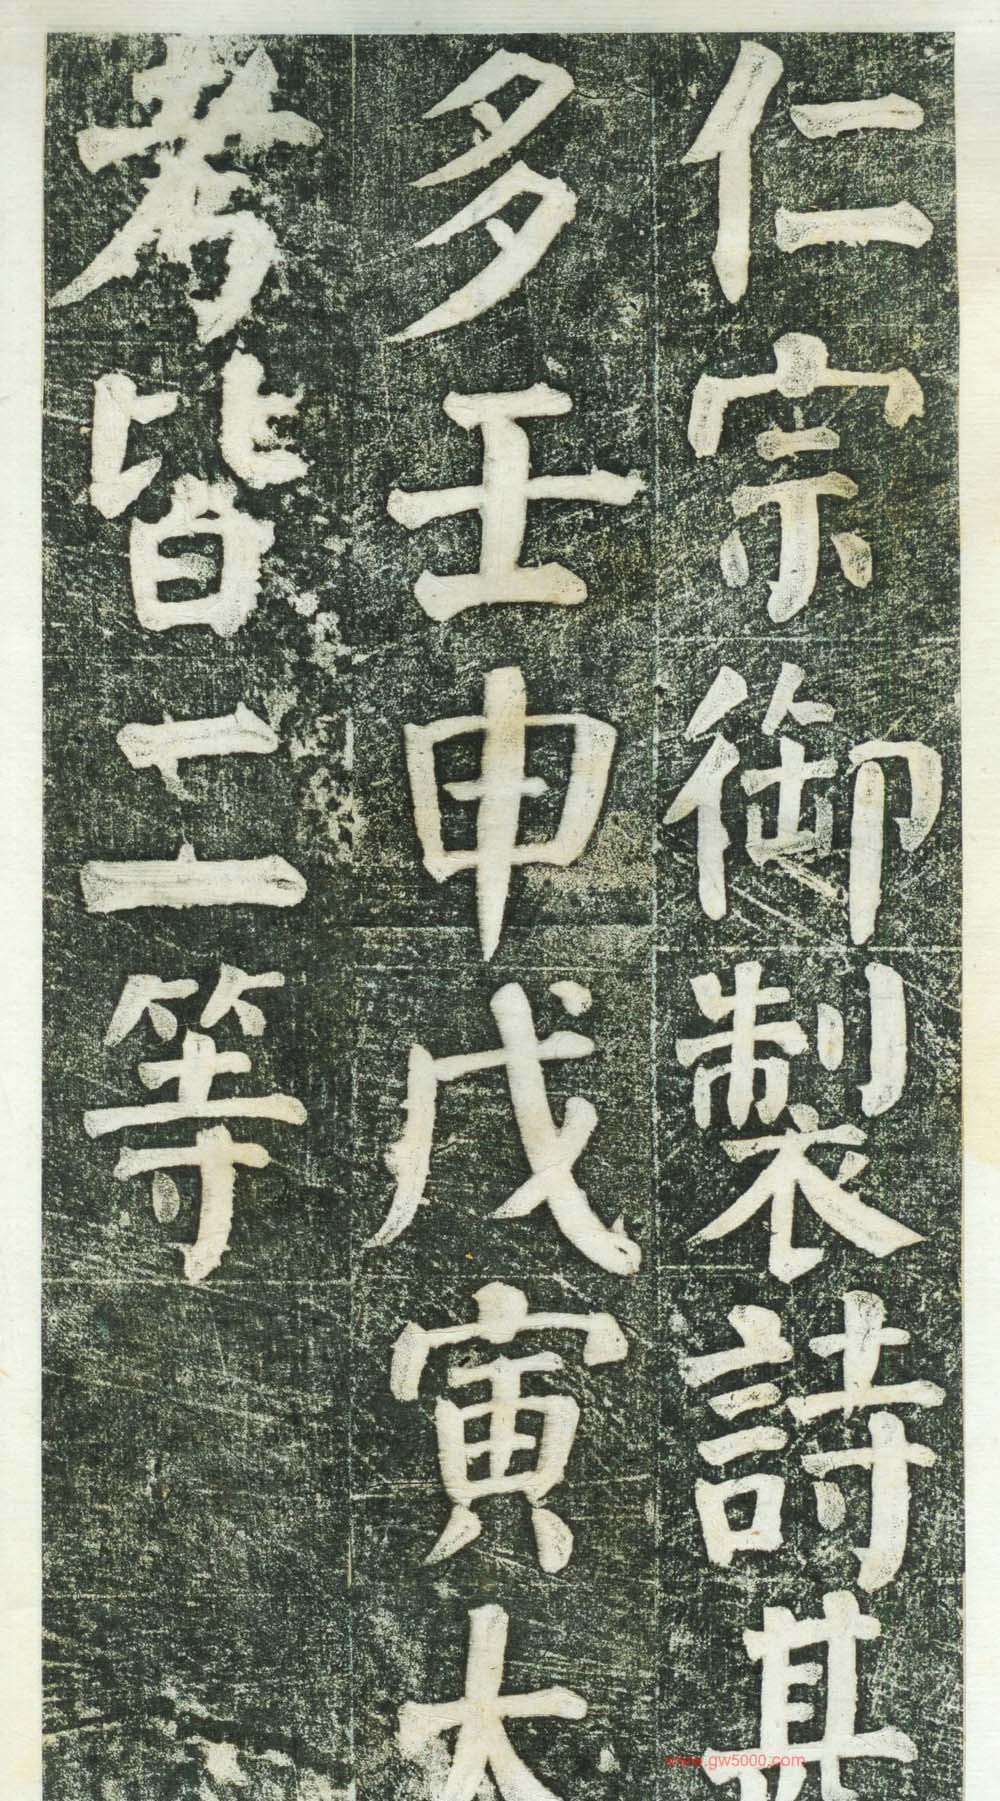 仁宗御製詩甚
多壬申戊寅大
考皆二等
www.gw5000.com